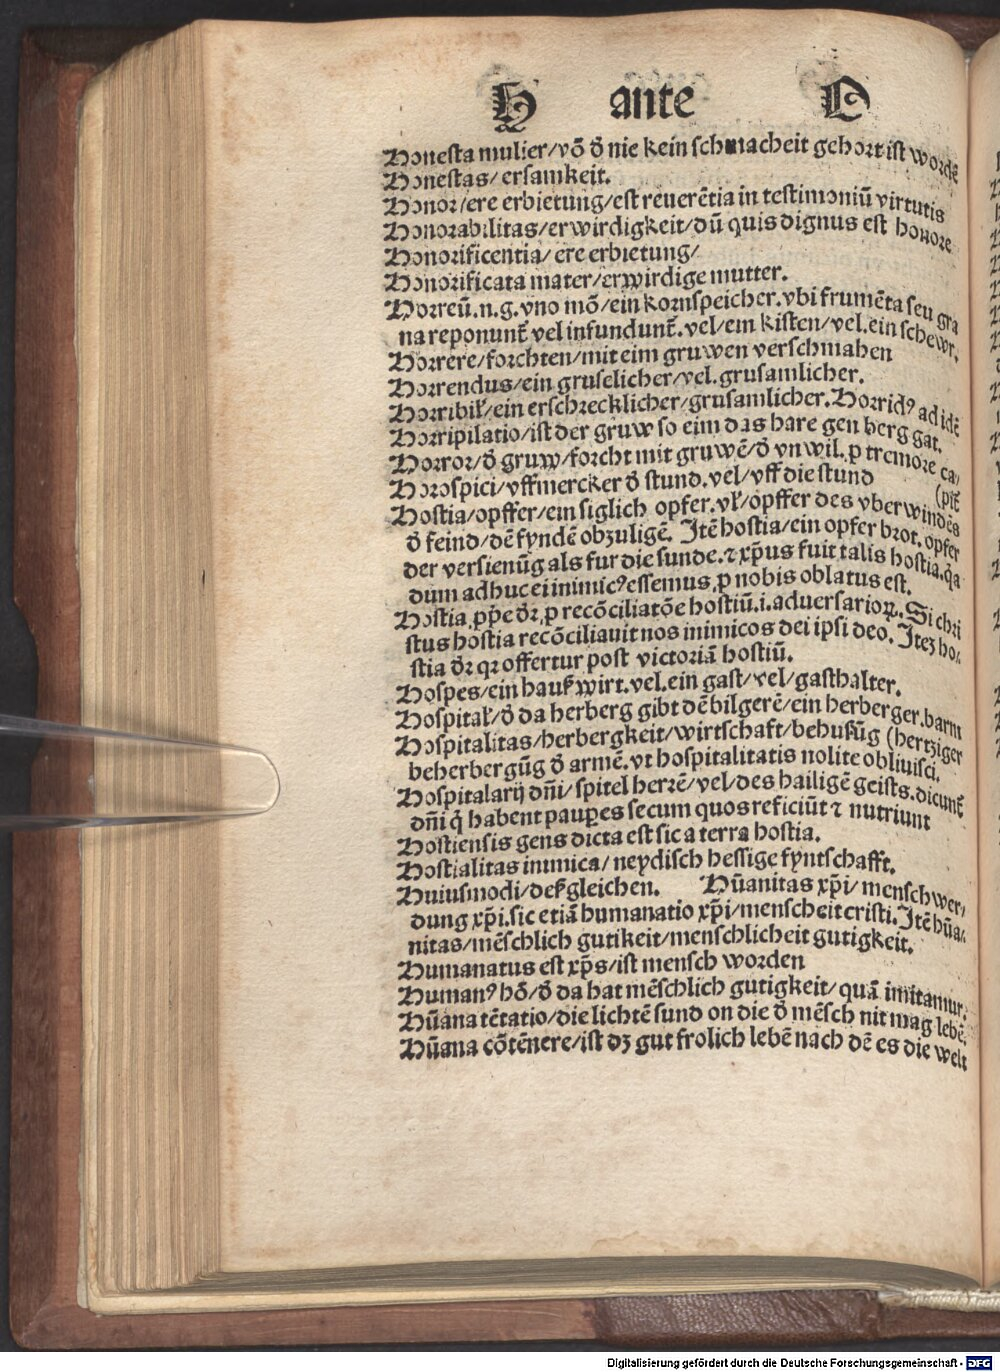 H ante O
Honesta mulier/vō ð nie kein schmacheit gehort ist wordē
Honestas/ersamkeit.
Honor/ere erbietung/est reuerētia in testimoniū virtutis
Honorabilitas/erwirdigkeit/dū quis dignus est honore
Honorificentia/ere erbietung/
Honorificata mater/erwirdige mutter.
Horreū.n.g.vno mō/ein kornspeicher.vbi frumēta seu gra
na reponunt̄ vel infundunt̄.vel/ein kisten/vel.ein schewr.
Horrere/forchten/mit eim gruwen verschmahen
Horrendus/ein gruselicher/vel.grusamlicher.
Horribil̄/ein erschrecklicher/grusamlicher.Horridꝰ ad idē
Horripilatio/ist der gruw so eim das hare gen berg gat.
Horror/ð gruw/forcht mit gruwē/ð vnwil.p tremore ca/
Horospici/vffmercker ð stund.vel/vff die stund (pit̄
Hostia/opffer/ein siglich opfer.vl̄/opffer des vberwindēs
ð feind/dē fyndē obzuligē. Itē hostia/ein opfer brot.opfer
der versienūg als fur die sunde.⁊ xp̄us fuit talis hostia.q̄a
dum adhuc ei inimicꝰ essemus ꝓ nobis oblatus est.
Hostia ꝓp̄e ðr̄ ꝓ recōciliatōe hostiū.i.aduersarioꝝ. Si chri
stus hostia recōciliauit nos inimicos dei ipsi deo. Itez ho/
stia ðr̄ qr offertur post victoriā hostiū.
Hospes/ein hauß wirt.vel.ein gast/vel/gasthalter.
Hospital̄/ð da herberg gibt dē bilgerē/ein herberger.barm
Hospitalitas/herbergkeit/wirtschaft/behusūg (hertziger
beherbergūg ð armē.vt hospitalitatis nolite obliuisci.
Hospitalarij dn̄i/spitel herrē/vel/des hailigē geists.dicunt̄
dn̄i q̄ habent pauꝑes secum quos reficiūt ⁊ nutriunt
Hostiensis gens dicta est sic a terra hostia.
Hostialitas inimica/neydisch hessige fyntschafft.
Huiusmodi/deßgleichen. Hūanitas xp̄i/menschwer/
dung xp̄i.sic etiā humanatio xp̄i/menscheit cristi.Itē hūa/
nitas/mēschlich gutikeit/menschlicheit gutigkeit.
Humanatus est xp̄s/ist mensch worden
Humanꝰ hō/ð da hat mēschlich gutigkeit/quā imitamur.
Hūana tētatio/die lichtē sund on die ð mēsch nit mag lebē.
Hūana cōtēnere/ist dz gut frolich lebē nach dē es die welt
Digitalisierung gefördert durch die Deutsche Forschungsgemeinschaft - DFG